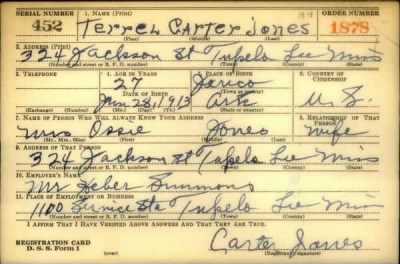 SERIAL NUMBER 1. NAME (Print) ORDER NUMBER
452 Terrel Carter Jones 1878
(First) (Middle) (Last)
2. ADDRESS (Print)
324 Jackson St Tupelo Lee Miss
(Number and street or R. F. D. number) (Town) (County) (State)
3. TELEPHONE 4. AGE IN YEARS 5. PLACE OF BIRTH 6. COUNTRY OF CITIZENSHIP
27 Jerico
DATE OF BIRTH (Town or county)
Jan 28, 1913 Ark U. S.
(Exchange) (Number) (Mo.) (Day) (Yr.) (State or country)
7. NAME OF PERSON WHO WILL ALWAYS KNOW YOUR ADDRESS 8. RELATIONSHIP OF THAT PERSON
Mrs Ossie Jones Wife
(Mr., Mrs., Miss) (First) (Middle) (Last)
9. ADDRESS OF THAT PERSON
324 Jackson St Tupelo Lee Miss
(Number and street or R. F. D. number) (Town) (County) (State)
10. EMPLOYER'S NAME
Mr Heber Simmons
11. PLACE OF EMPLOYMENT OR BUSINESS
1100 Service Sta Tupelo Lee Miss
(Number and street or R. F. D. number) (Town) (County) (State)
I AFFIRM THAT I HAVE VERIFIED ABOVE ANSWERS AND THAT THEY ARE TRUE.
REGISTRATION CARD
D. S. S. Form 1 Carter Jones
(Registrant's signature)